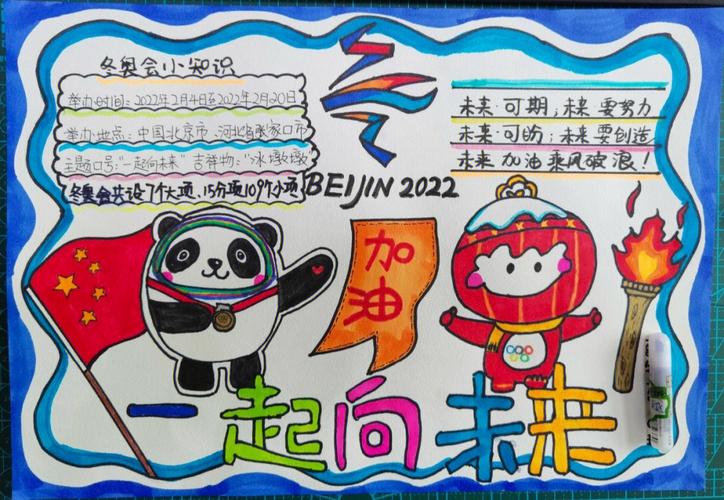 冬奥会小知识
举办时间：2022年2月4日至2022年2月20日
举办地点：中国北京市、河北省张家口市
主题口号："一起向未来" 吉祥物："冰墩墩"
冬奥会共设7个大项、15分项109个小项
BEIJIN 2022
未来·可期，未来要努力
未来·可盼，未来要创造
未来加油乘风破浪！
加油
一起向未来